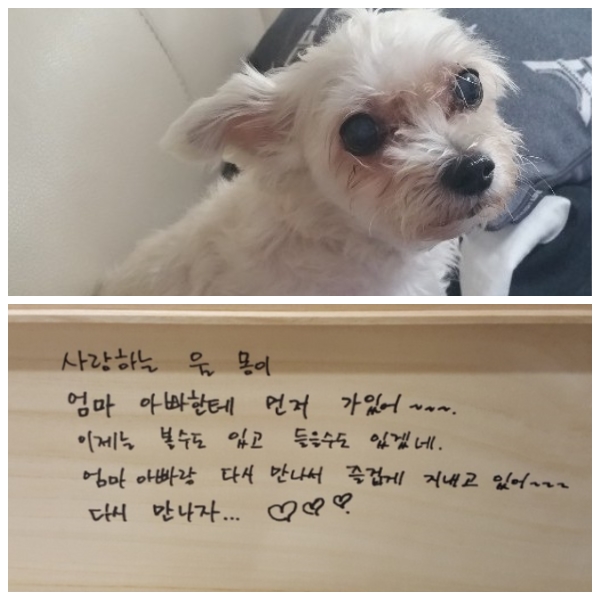 사랑하는 웊 몽이
엄마 아빠한테 먼저 가있어~~~.
이제는 볼수도 있고 들을수도 있겠네.
엄마 아빠랑 다시 만나서 즐겁게 지내고 있어~~~
다시 만나자... ♡♡♡